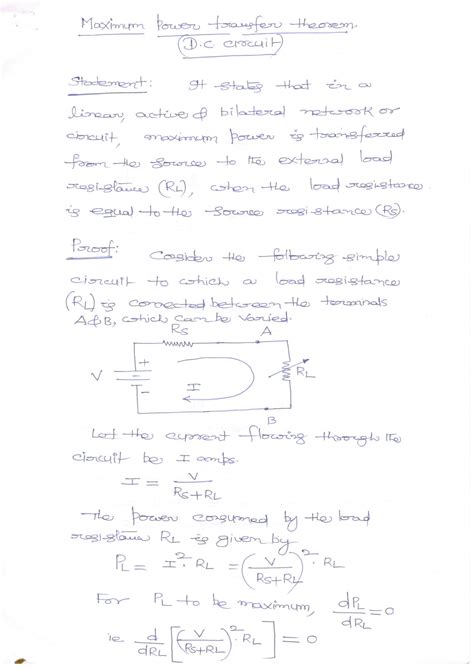 Maximum Power transfer theorem
(D.C circuit)
Statement: It states that in a
linear, active & bilateral network or
circuit, maximum power is transferred
from the source to the external load
resistance (RL), when the load resistance
is equal to the source resistance (Rs).
Proof: Consider the following simple
circuit to which a load resistance
(RL) is connected between the terminals
A & B, which can be varied.
Rs A
+
V I RL
-
B
Let the current flowing through the
circuit be I amps.
I = V / (Rs+RL)
The power consumed by the load
resistance RL is given by
PL = I². RL = (V / (Rs+RL))². RL
For PL to be maximum, dPL/dRL = 0
ie d/dRL [(V / (Rs+RL))². RL] = 0